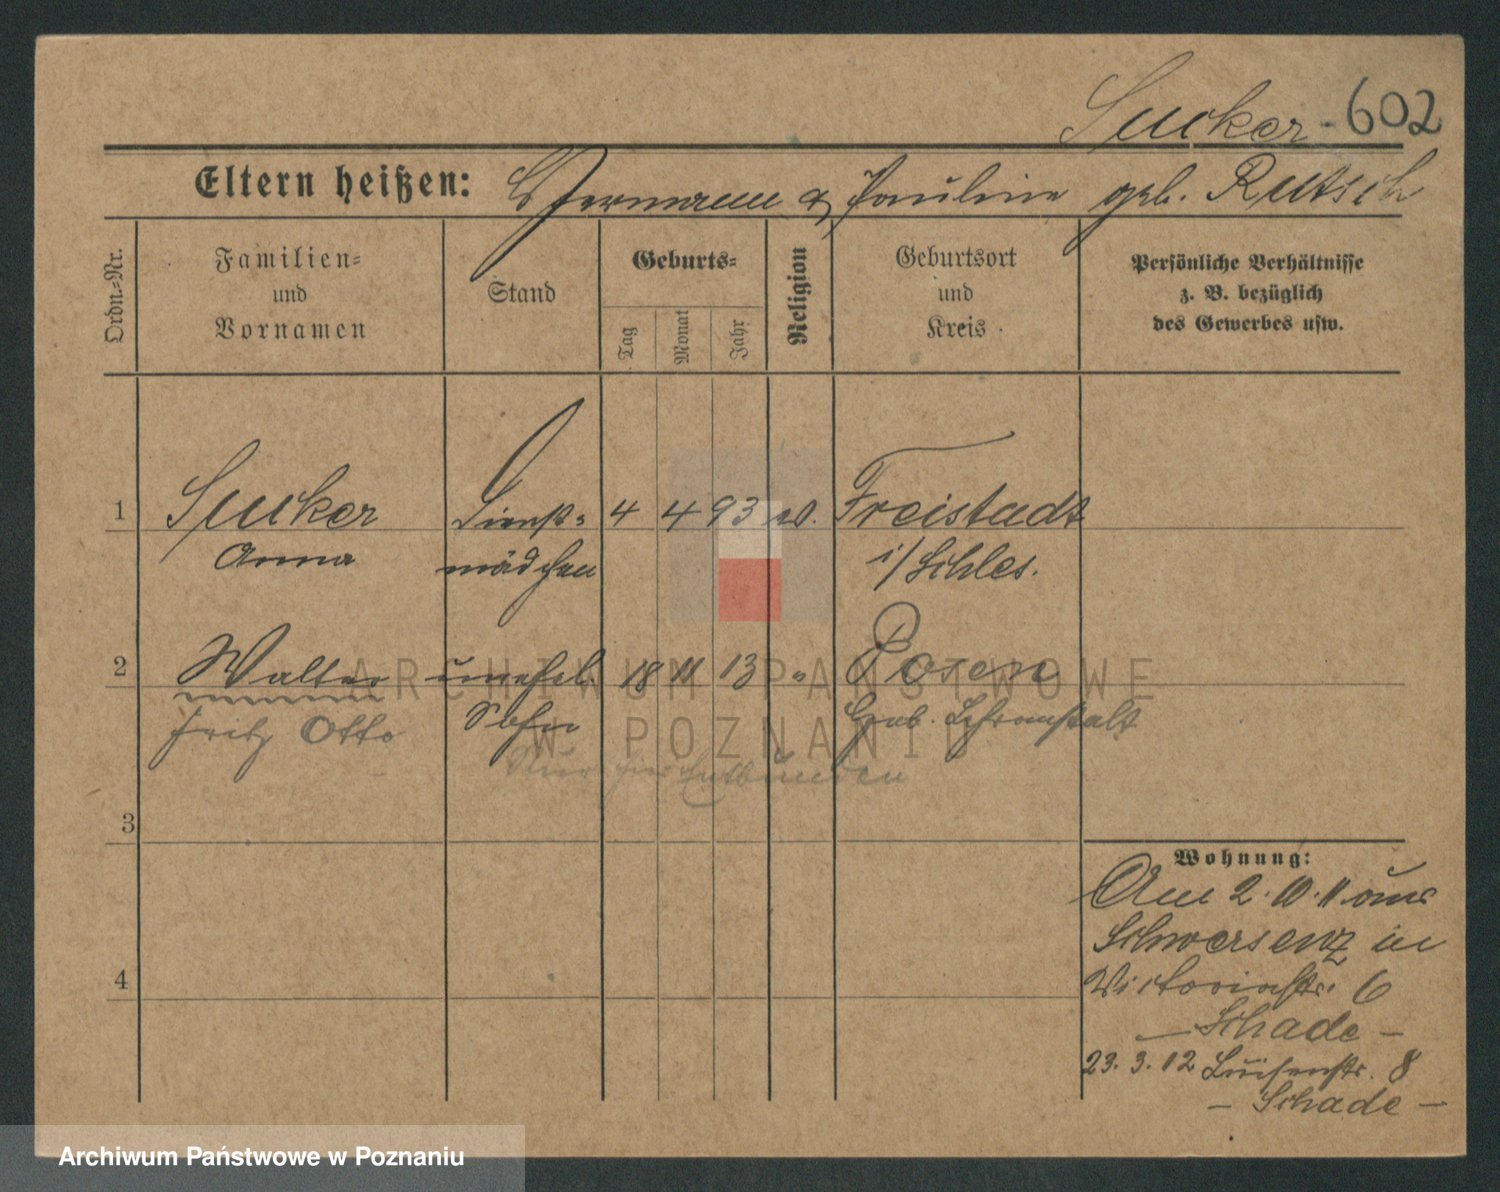 Sucker - 602
Eltern heißen: Hermann & Pauline geb. Rutsch
Ordn.-Nr.
Familien-
und
Vornamen
Stand
Geburts-
Tag
Monat
Jahr
Religion
Geburtsort
und
Kreis
Persönliche Verhältnisse
z. B. bezüglich
des Gewerbes usw.
1 Sucker Dienst- 4 4 93 ev. Freistadt
Anna mädchen i/Schles.
2 Walter unehel. 18 11 13 " Posen
Fritz Otto Sohn Geb. Lehranstalt
Nur hier entbunden
3
Wohnung:
Am 2.10.11 aus
Schwersenz in
4
Victoriastr. 6
- Schade -
23.3.12 Luisenstr. 8
- Schade -
ARCHIWUM PAŃSTWOWE
W POZNANIU
Archiwum Państwowe w Poznaniu